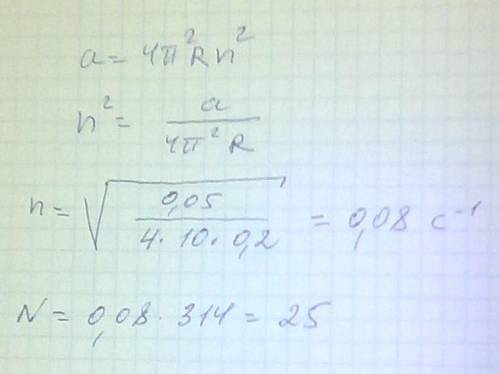 a = 4π²Rn²
n² = a / 4π²R
n = √(0,05 / 4·10·0,2) = 0,08 c⁻¹
N = 0,08 · 314 = 25